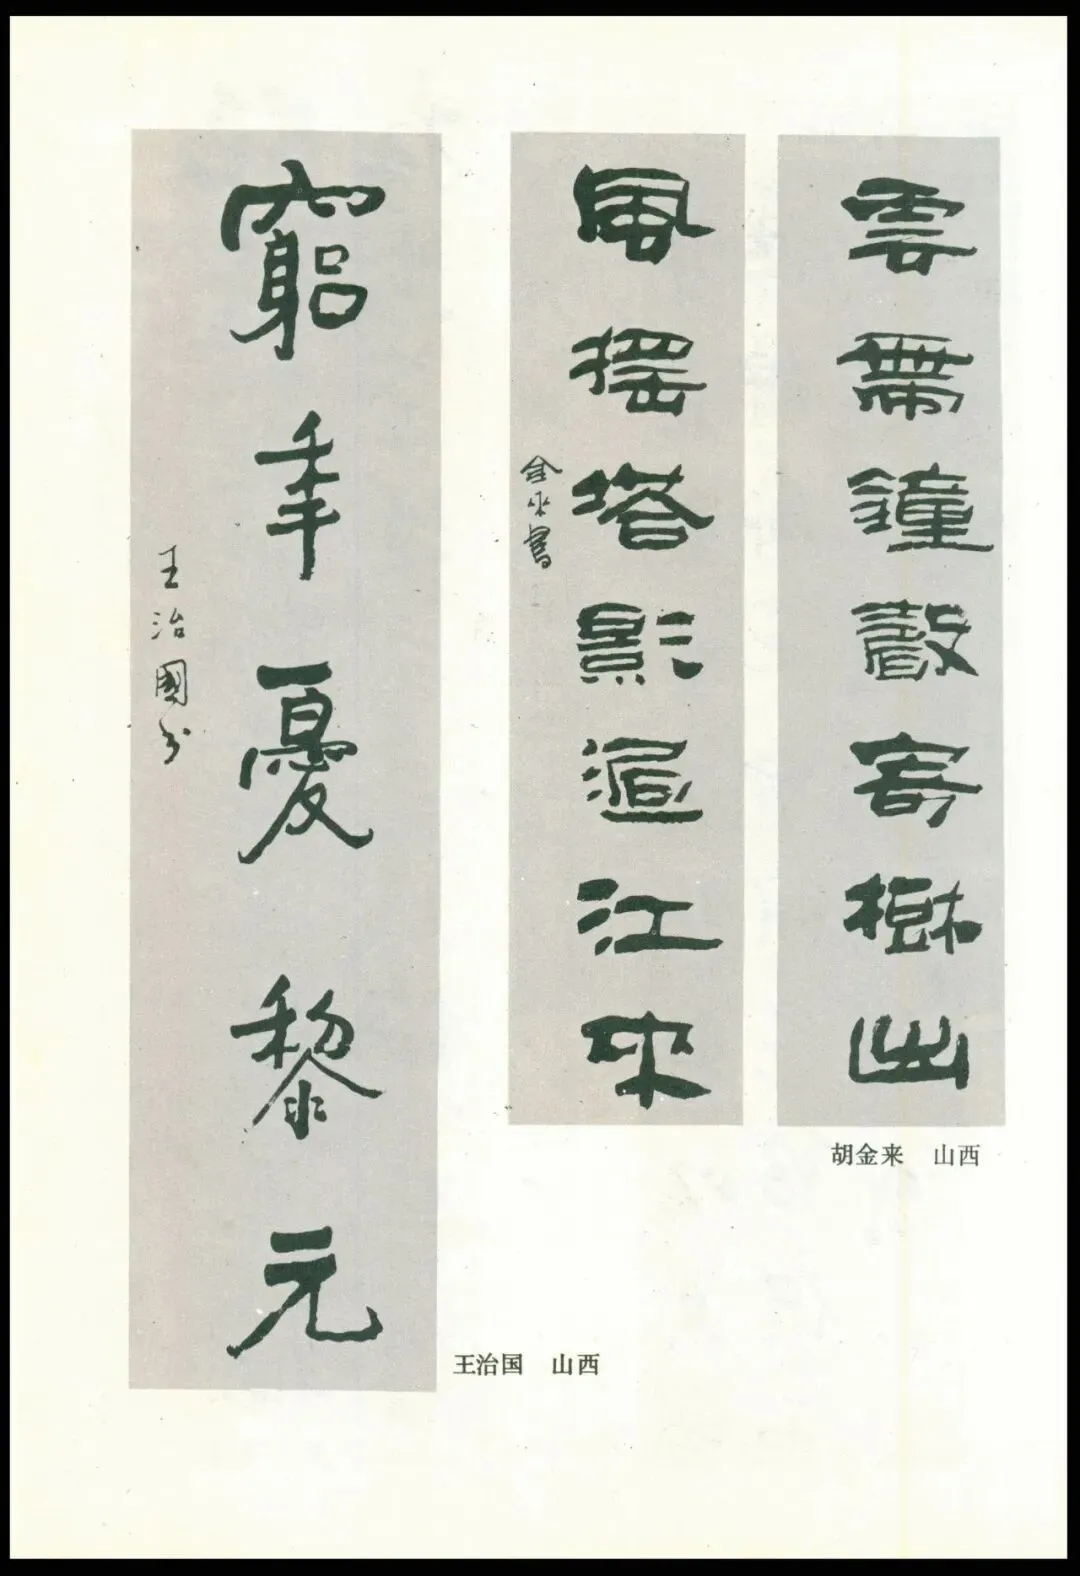 雲帶鐘聲穿樹出
風搖塔影過江來
金來書
胡金来　山西
窮年憂黎元
王治國书
王治国　山西